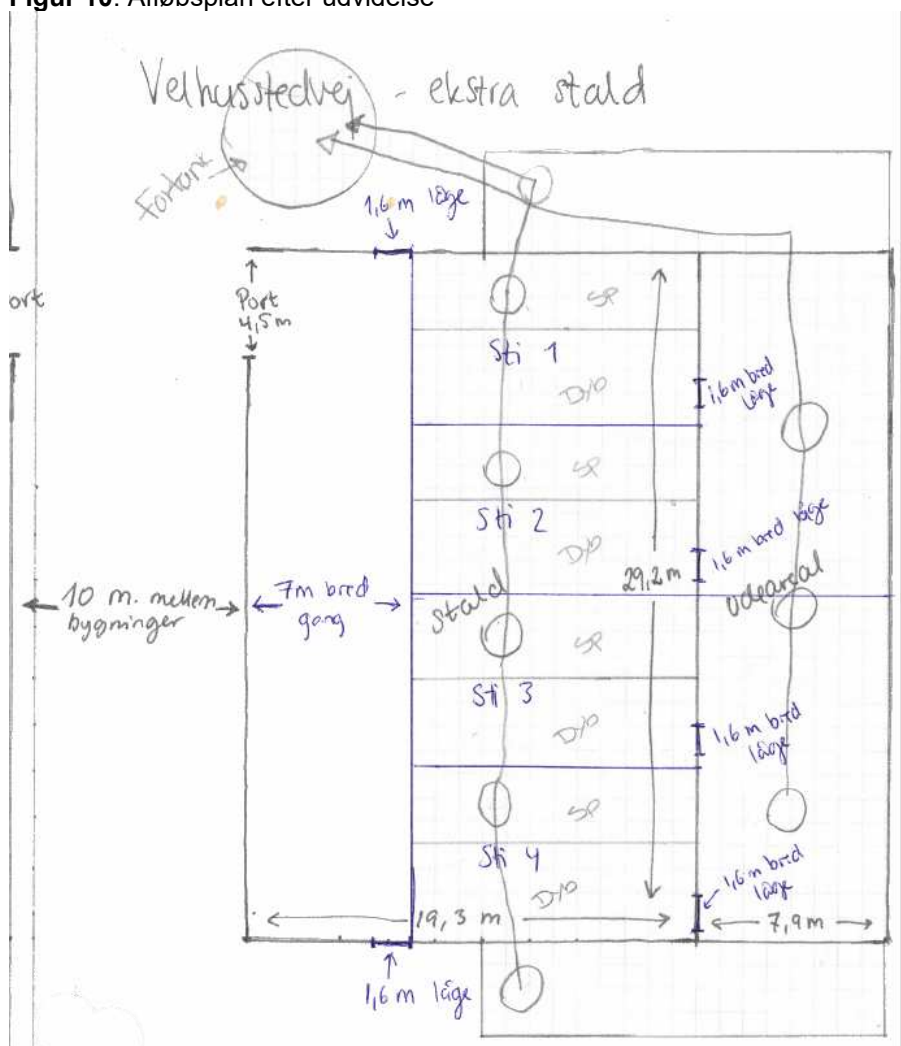 Figur 10: Afløbsplan efter udvidelse
Velhusstedvej - ekstra stald
Fortank
1,6 m låge
ort
Port
4,5m
SP
Sti 1
Dyb
1,6 m bred
låge
SP
Sti 2
Dyb
1,6 m bred låge
29,2 m
10 m. mellem
bygninger
7m bred
gang
stald
udeareal
SP
Sti 3
Dyb
1,6 m bred
låge
SP
Sti 4
Dyb
1,6 m bred
låge
19,3 m
7,9 m
1,6 m låge